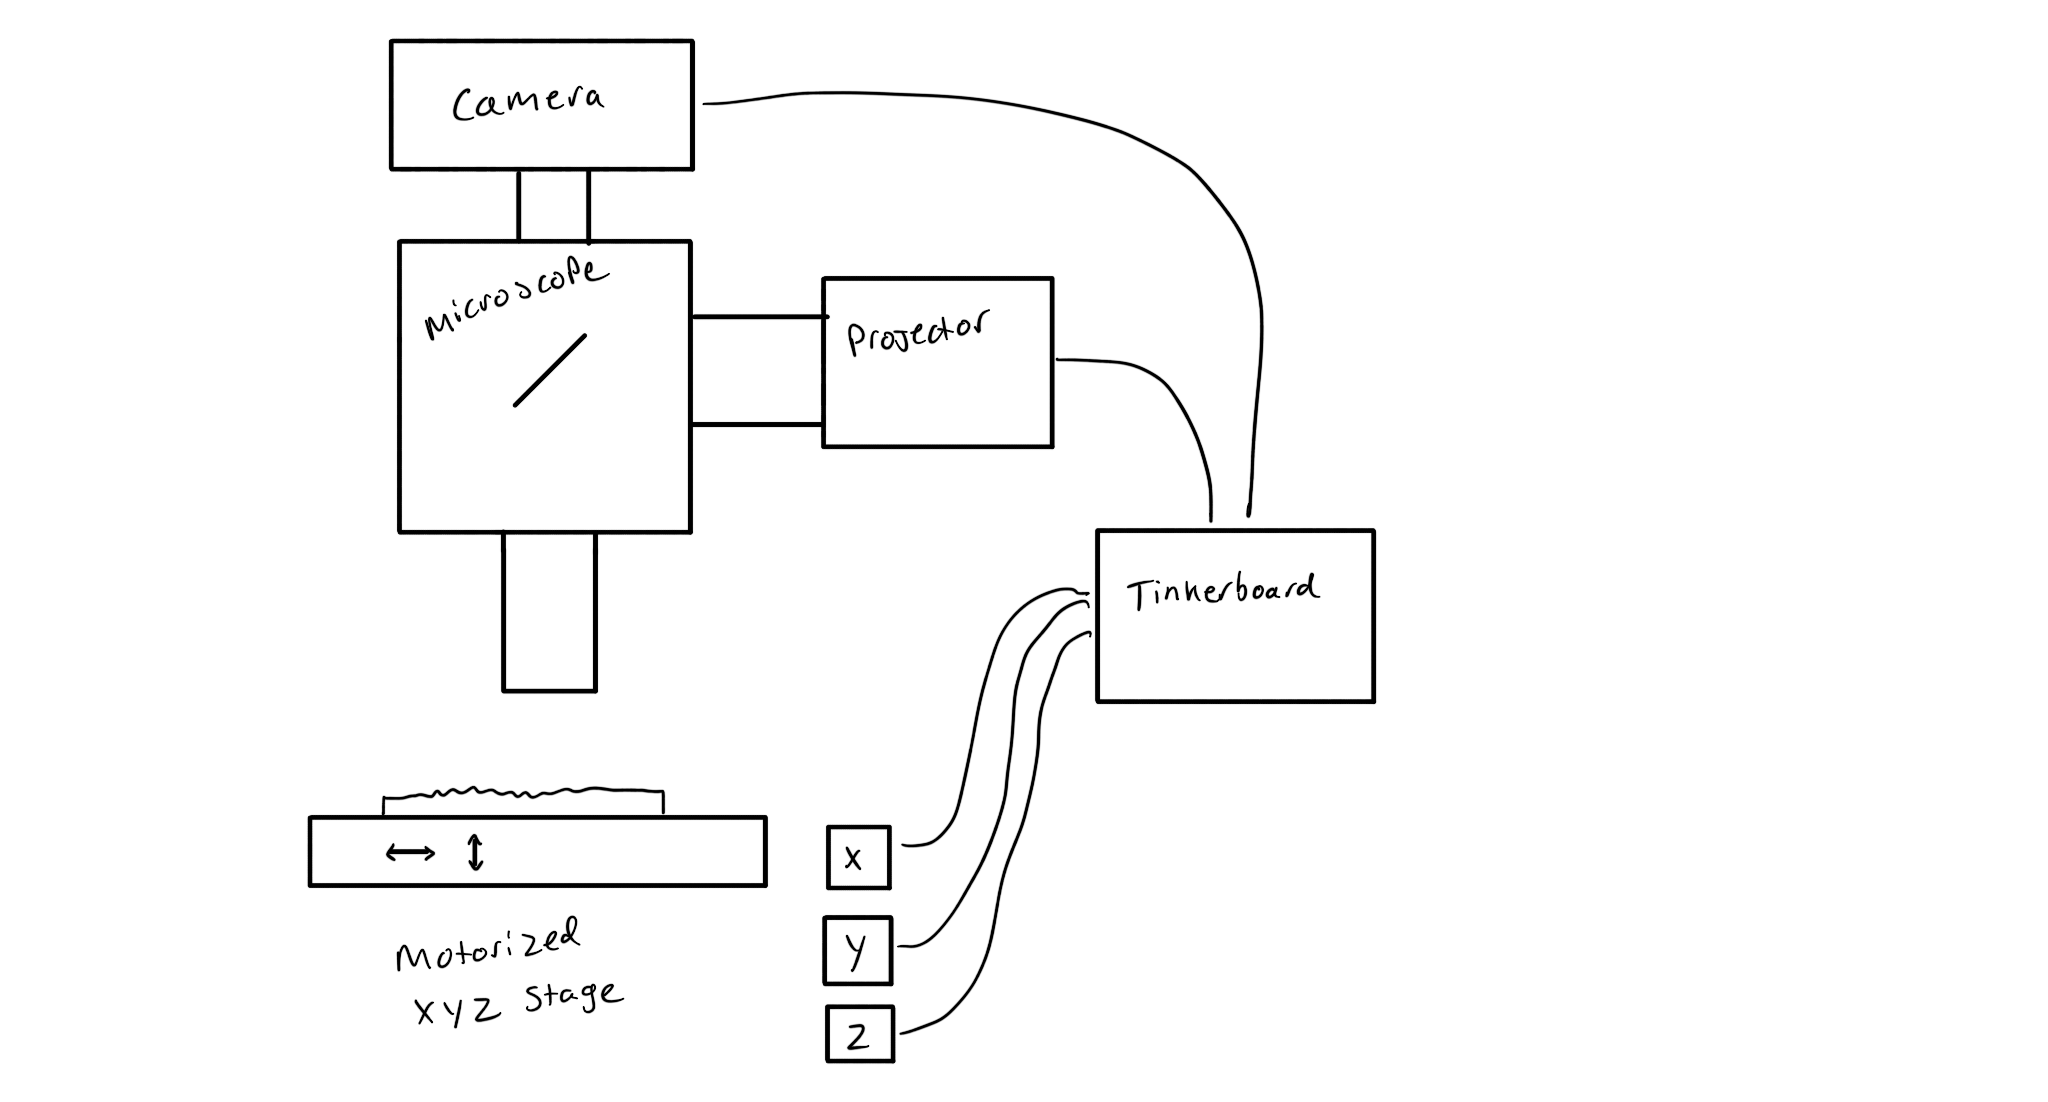 Camera
Microscope
Projector
Tinkerboard
X
Y
Z
Motorized
XYZ Stage